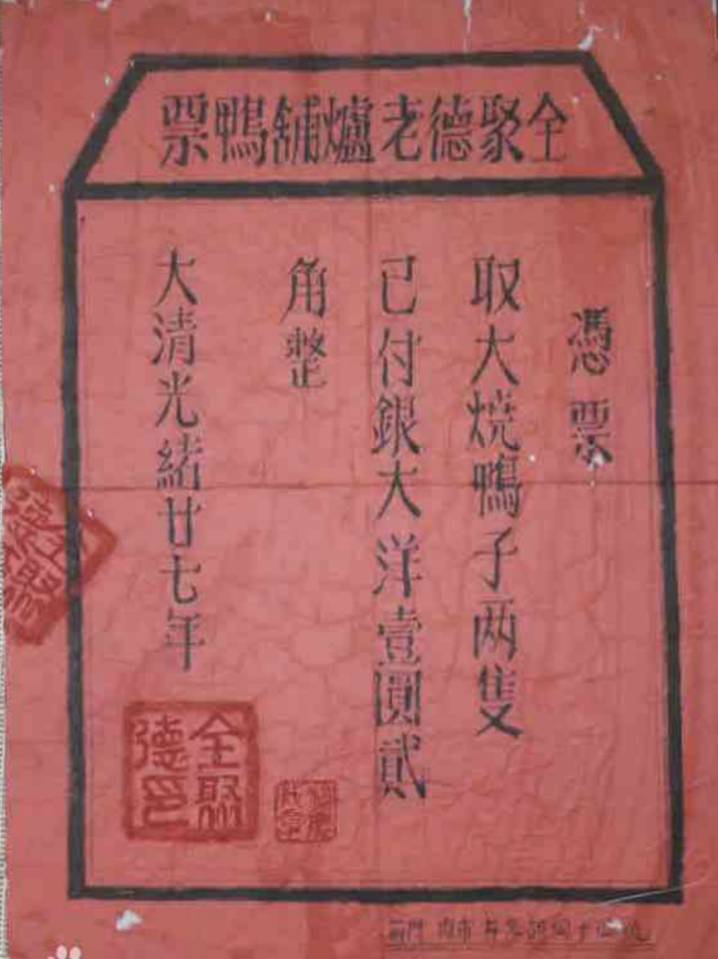 全聚德老爐鋪鴨票
憑票
取大烧鴨子两隻
已付銀大洋壹圓貳
角整
大清光緒廿七年
全聚德印
全聚德